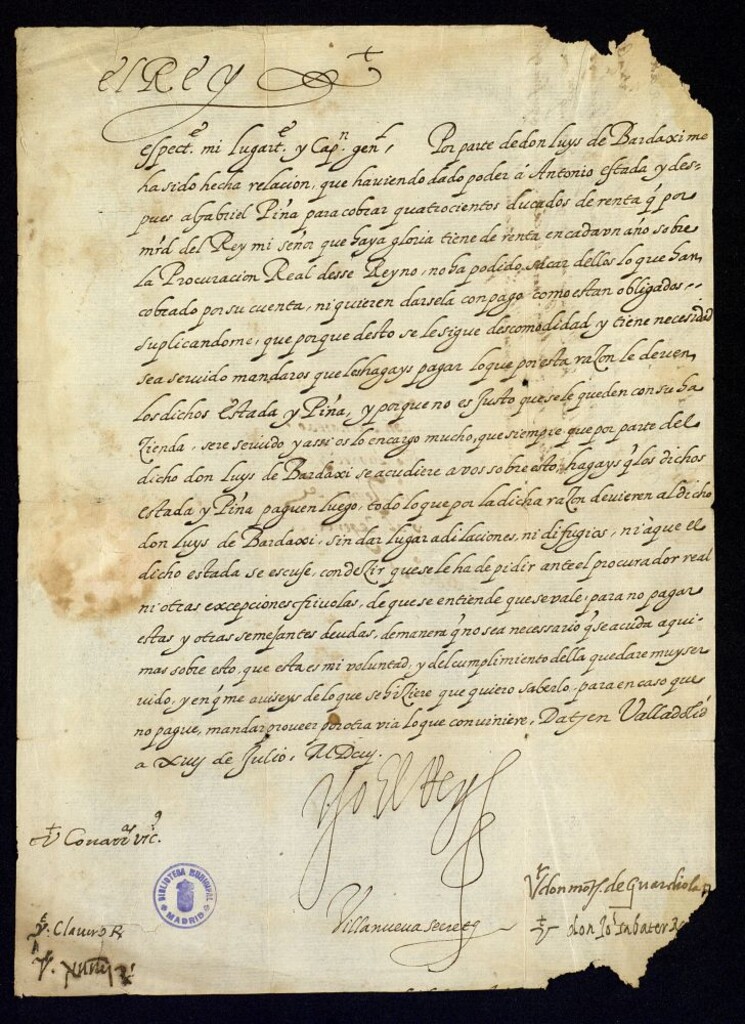 el Rey
espect.e mi lugart.e y Cap.n gen.l, Por parte de don luys de Bardaxi me
ha sido hecha relacion, que haviendo dado poder á Antonio estada y des-
pues a Gabriel Piña para cobrar quatrocientos ducados de renta q̃ por
mrd del Rey mi señor que haya gloria tiene de renta en cada vn año sobre
la Procuracion Real desse Reyno, no ha podido sacar dellos lo que han
cobrado por su cuenta, ni quieren darsela con pago como estan obligados --
suplicandome, que porque desto se le sigue descomodidad y tiene necesidad
sea seruido mandaros que les hagays pagar lo que por esta razon le deuen
los dichos Estada y Piña, y porque no es Justo que se le queden con su ha
zienda, sere seruido y assi os lo encargo mucho, que siempre que por parte del
dicho don luys de Bardaxi se acudiere a vos sobre esto, hagays q̃ los dichos
estada y Piña paguen luego, todo lo que por la dicha razon deuieren al dicho
don luys de Bardaxi, sin dar lugar a dilaciones, ni difugios, ni à que el
dicho estada se escuse, con dezir que se le ha de pidir ante el procurador real
ni otras excepciones friuolas, de que se entiende que se vale para no pagar
estas y otras semejantes deudas, de manera q̃ no sea necessario q̃ se acuda aqui
mas sobre esto, que esta es mi voluntad, y del cumplimiento della quedare muy ser
uido, y en q̃ me auiseys de lo que se hiziere que quiero saberlo, para en caso que
no pague, mandar proveer por otra via lo que conuiniere, Dat en Valladolid
a xvij de Julio, MDCij.
Yo El Rey
Vt Couarr.s vic.s
Vt don mo de Guardiola R
BIBLIOTECA MUNICIPAL
MADRID
Villanueva secret
Vt Clavero R.
Vt don Jo Sabater R